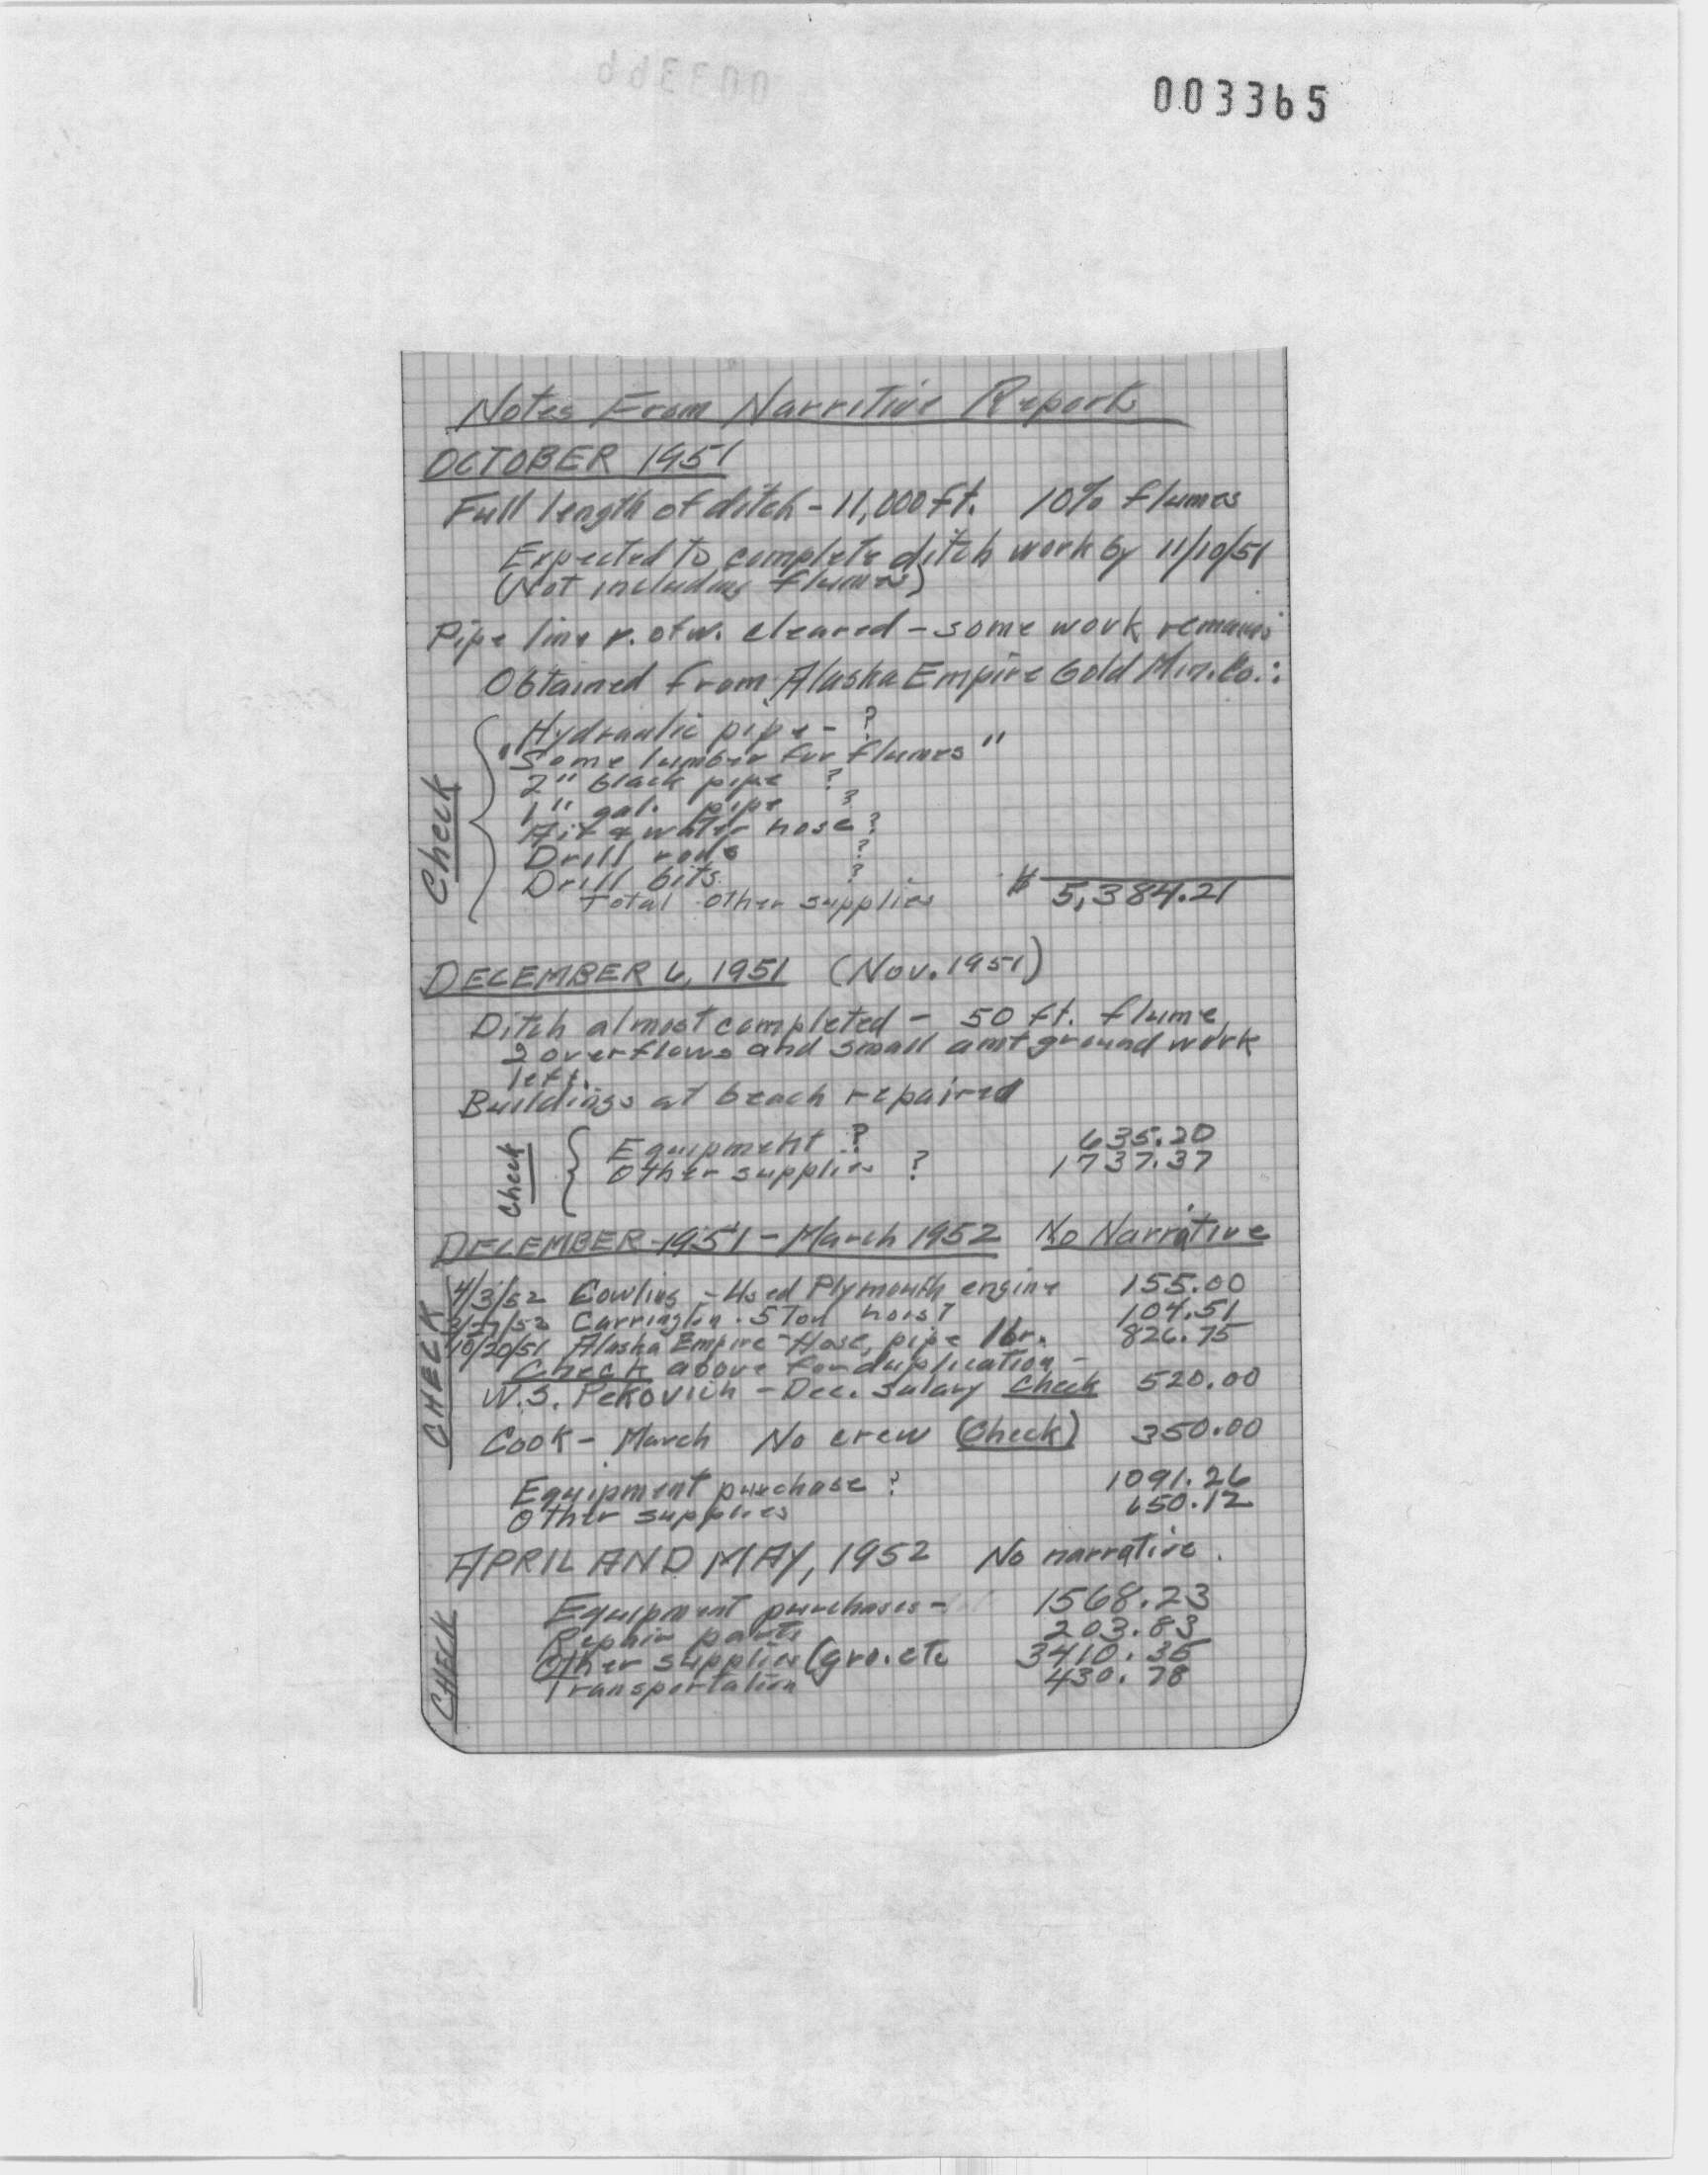 003365
Notes From Narritive Reports
OCTOBER 1951
Full length of ditch - 11,000 ft. 10% flumes
Expected to complete ditch work by 11/10/51
(Not including flumes)
Pipe line r. of w. cleared - some work remains
Obtained from Alaska Empire Gold Min. Co.:
Hydraulic pipe - ?
"Some lumber for flumes"
2" black pipe ?
1" gal. pipe ?
Air & water hose ?
Drill rods ?
Drill bits ?
Total other supplies $ 5,384.21
Check
DECEMBER 6, 1951 (Nov. 1951)
Ditch almost completed - 50 ft. flume
2 overflows and small amt ground work
left.
Buildings at beach repaired
Check
Equipment ? 635.20
Other supplies ? 1737.37
DECEMBER 1951 - March 1952 No Narrative
CHECK
4/3/52 Cowling - Used Plymouth engine 155.00
Carrington - 5 Ton hoist 104.51
10/20/51 Alaska Empire - Hose, pipe lbr. 826.75
Check above for duplication -
W.S. Pekovich - Dec. salary Check 520.00
Cook - March No crew (Check) 350.00
Equipment purchase ? 1091.26
Other supplies 650.12
APRIL AND MAY, 1952 No narrative.
CHECK
Equipment purchases - 1568.23
Repair parts 203.83
Other supplies (gro. etc 3410.35
Transportation 430.78